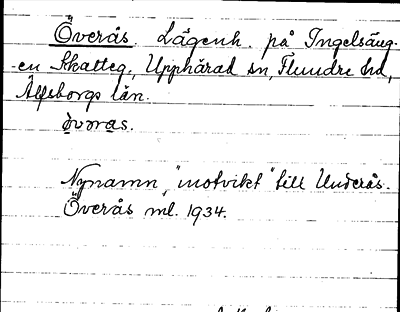 Överås. Lägenh. på Ingelsäng-
en Skatteg., Upphärad sn, Flundre hd,
Älfsborgs län.
òvəras.
Nynamn, "motvikt" till Underås.
Överås ml. 1934.